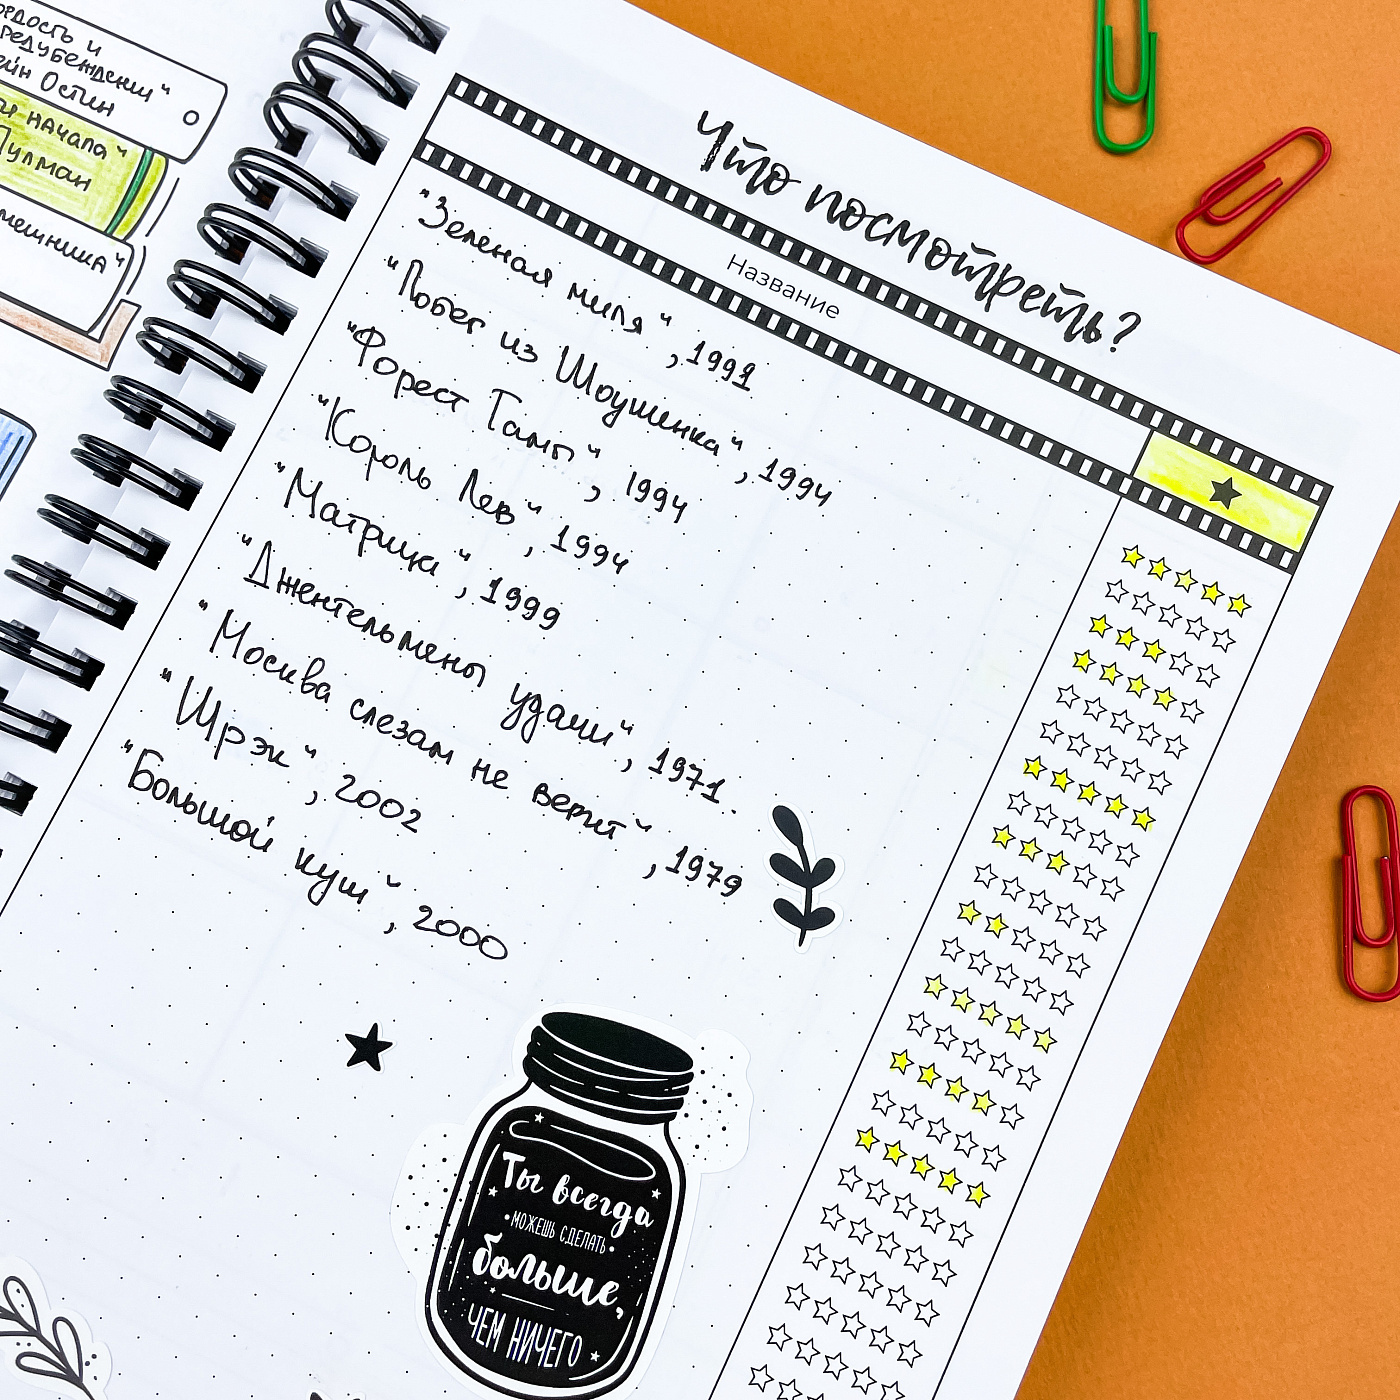 редубеждении"
Остин
начала"
Пулман
Что посмотреть?
Название
"Зеленая миля", 1991
"Побег из Шоушенка", 1994
"Форест Гамп", 1994
"Король Лев", 1994
"Матрица", 1999
"Джентельмены удачи", 1971.
"Москва слезам не верит", 1979
"Шрэк", 2002
"Большой куш", 2000
Ты всегда
•МОЖЕШЬ СДЕЛАТЬ•
больше,
ЧЕМ НИЧЕГО